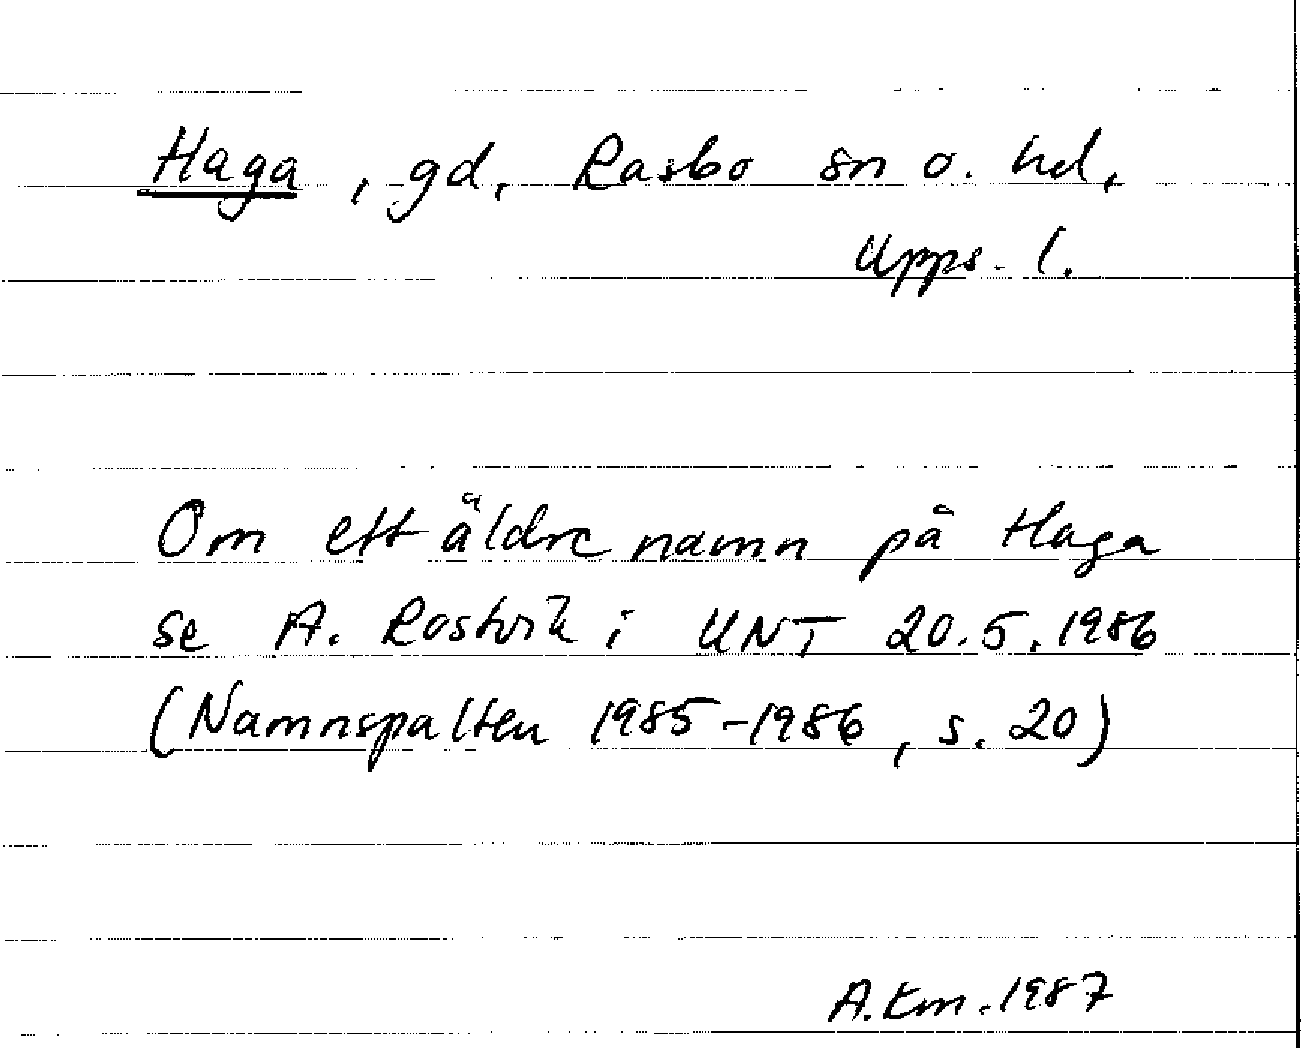 Haga, gd, Rasbo sn o. hd,
Upps. l.
Om ett äldre namn på Haga
se A. Rostvik i UNT 20.5.1986
(Namnspalten 1985-1986, s. 20)
A.Em.1987